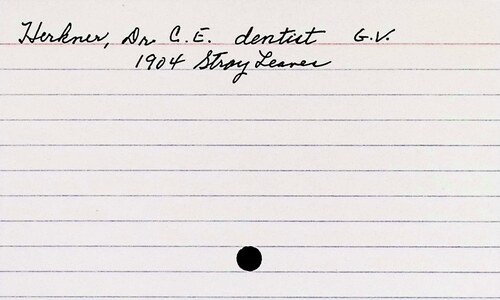 Herkner, Dr. C.E. dentist G.V.
1904 Stray Leaves